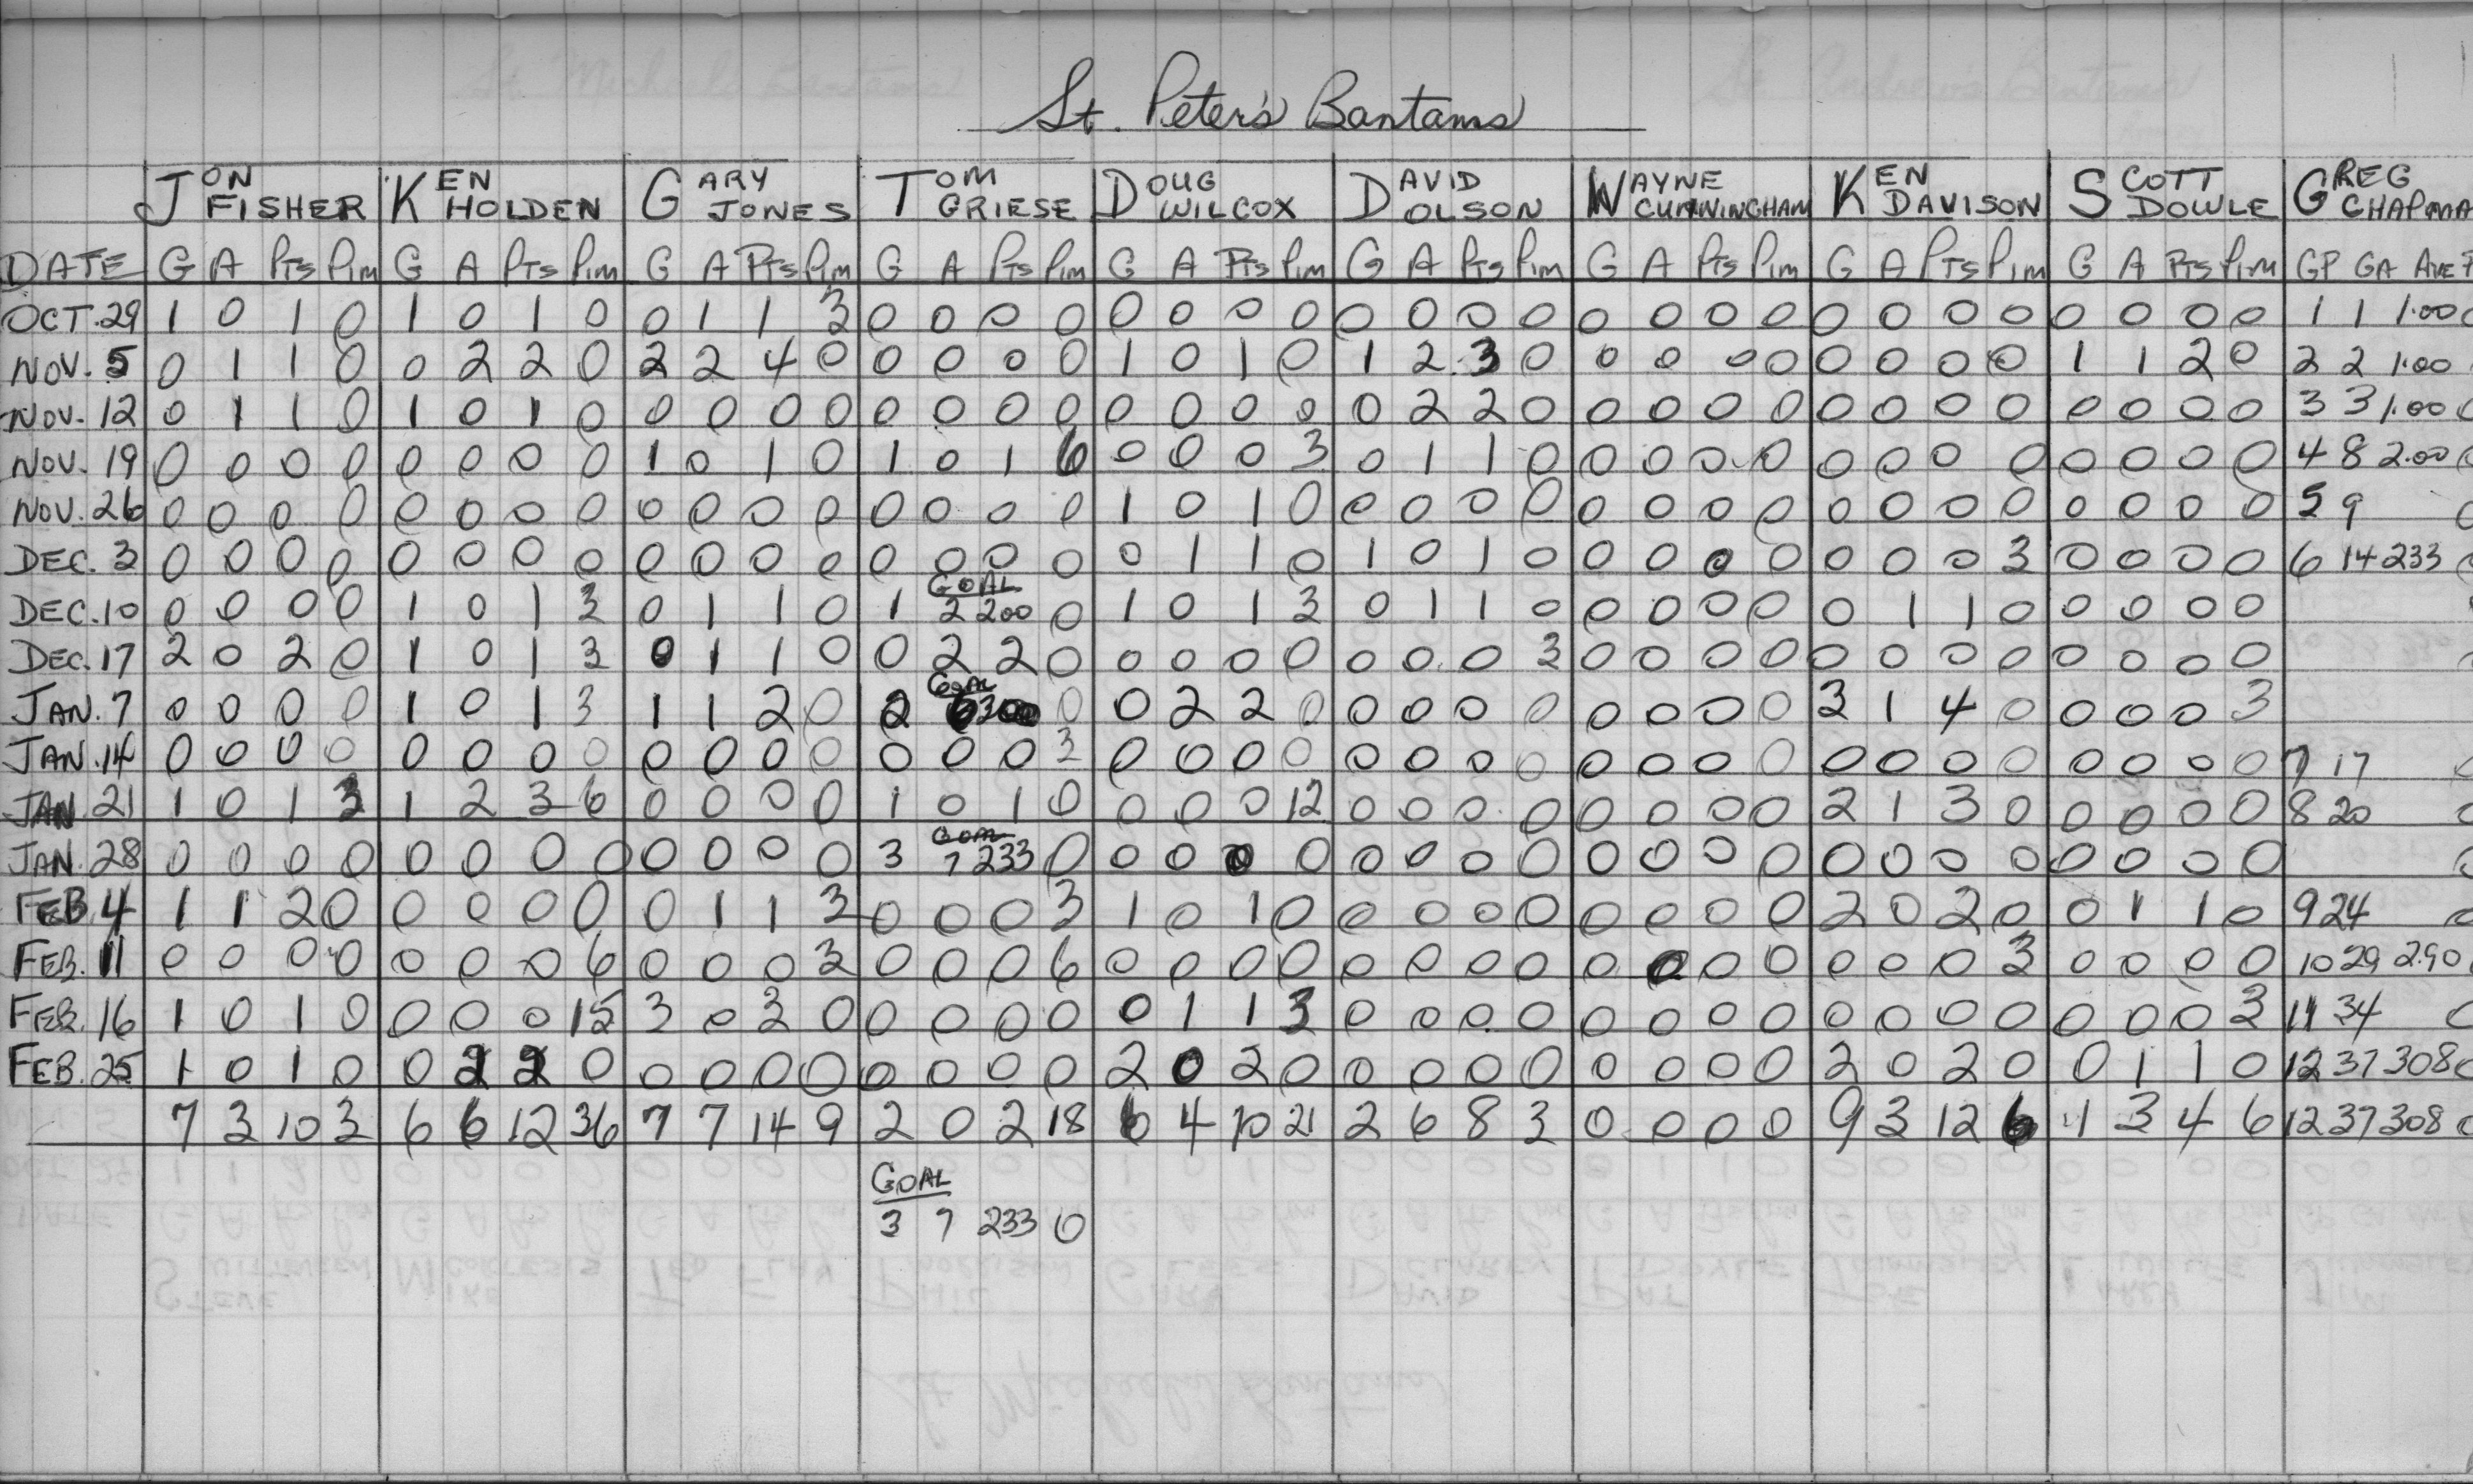 St. Peter's Bantams
JON FISHER KEN HOLDEN GARY JONES TOM GRIESE DOUG WILCOX DAVID OLSON WAYNE CUNNINGHAM KEN DAVISON SCOTT DOWLE GREG CHAPMA
DATE G A Pts Pim G A Pts Pim G A Pts Pim G A Pts Pim G A Pts Pim G A Pts Pim G A Pts Pim G A Pts Pim G A Pts Pim GP GA AVE P
OCT. 29 1 0 1 0 1 0 1 0 0 1 1 3 0 0 0 0 0 0 0 0 0 0 0 0 0 0 0 0 0 0 0 0 0 0 0 0 1 1 1.00 0
NOV. 5 0 1 1 0 0 2 2 0 2 2 4 0 0 0 0 0 1 0 1 0 1 2 3 0 0 0 0 0 0 0 0 0 1 1 2 0 2 2 1.00
NOV. 12 0 1 1 0 1 0 1 0 0 0 0 0 0 0 0 0 0 0 0 0 0 2 2 0 0 0 0 0 0 0 0 0 0 0 0 0 3 3 1.00 0
NOV. 19 0 0 0 0 0 0 0 0 1 0 1 0 1 0 1 6 0 0 0 3 0 1 1 0 0 0 0 0 0 0 0 0 0 0 0 0 4 8 2.00 0
NOV. 26 0 0 0 0 0 0 0 0 0 0 0 0 0 0 0 0 1 0 1 0 0 0 0 0 0 0 0 0 0 0 0 0 0 0 0 0 5 9 0
DEC. 3 0 0 0 0 0 0 0 0 0 0 0 0 0 0 0 0 0 1 1 0 1 0 1 0 0 0 0 0 0 0 0 3 0 0 0 0 6 14 233 0
GOAL
DEC. 10 0 0 0 0 1 0 1 3 0 1 1 0 1 2 200 0 1 0 1 3 0 1 1 0 0 0 0 0 0 1 1 0 0 0 0 0
DEC. 17 2 0 2 0 1 0 1 3 0 1 1 0 0 2 2 0 0 0 0 0 0 0 0 3 0 0 0 0 0 0 0 0 0 0 0 0
GOAL
JAN. 7 0 0 0 0 1 0 1 3 1 1 2 0 2 0 0 2 2 0 0 0 0 0 0 0 0 0 3 1 4 0 0 0 0 3
JAN. 14 0 0 0 0 0 0 0 0 0 0 0 0 0 0 0 3 0 0 0 0 0 0 0 0 0 0 0 0 0 0 0 0 0 0 0 0 7 17
JAN. 21 1 0 1 3 1 2 3 6 0 0 0 0 1 0 1 0 0 0 0 12 0 0 0 0 0 0 0 0 2 1 3 0 0 0 0 0 8 20 0
GOAL
JAN. 28 0 0 0 0 0 0 0 0 0 0 0 0 3 7 233 0 0 0 0 0 0 0 0 0 0 0 0 0 0 0 0 0 0 0 0 0 0
FEB. 4 1 1 2 0 0 0 0 0 0 1 1 3 0 0 0 3 1 0 1 0 0 0 0 0 0 0 0 0 2 0 2 0 0 1 1 0 9 24 0
FEB. 11 0 0 0 0 0 0 0 6 0 0 0 3 0 0 0 6 0 0 0 0 0 0 0 0 0 0 0 0 0 0 0 3 0 0 0 0 10 29 2.90 0
FEB. 16 1 0 1 0 0 0 0 15 3 0 3 0 0 0 0 0 0 1 1 3 0 0 0 0 0 0 0 0 0 0 0 0 0 0 0 3 11 34 0
FEB. 25 1 0 1 0 0 2 2 0 0 0 0 0 0 0 0 0 2 0 2 0 0 0 0 0 0 0 0 0 2 0 2 0 0 1 1 0 12 37 308 0
7 3 10 3 6 6 12 36 7 7 14 9 2 0 2 18 6 4 10 21 2 6 8 3 0 0 0 0 9 3 12 6 1 3 4 6 12 37 308 0
GOAL
3 7 233 0